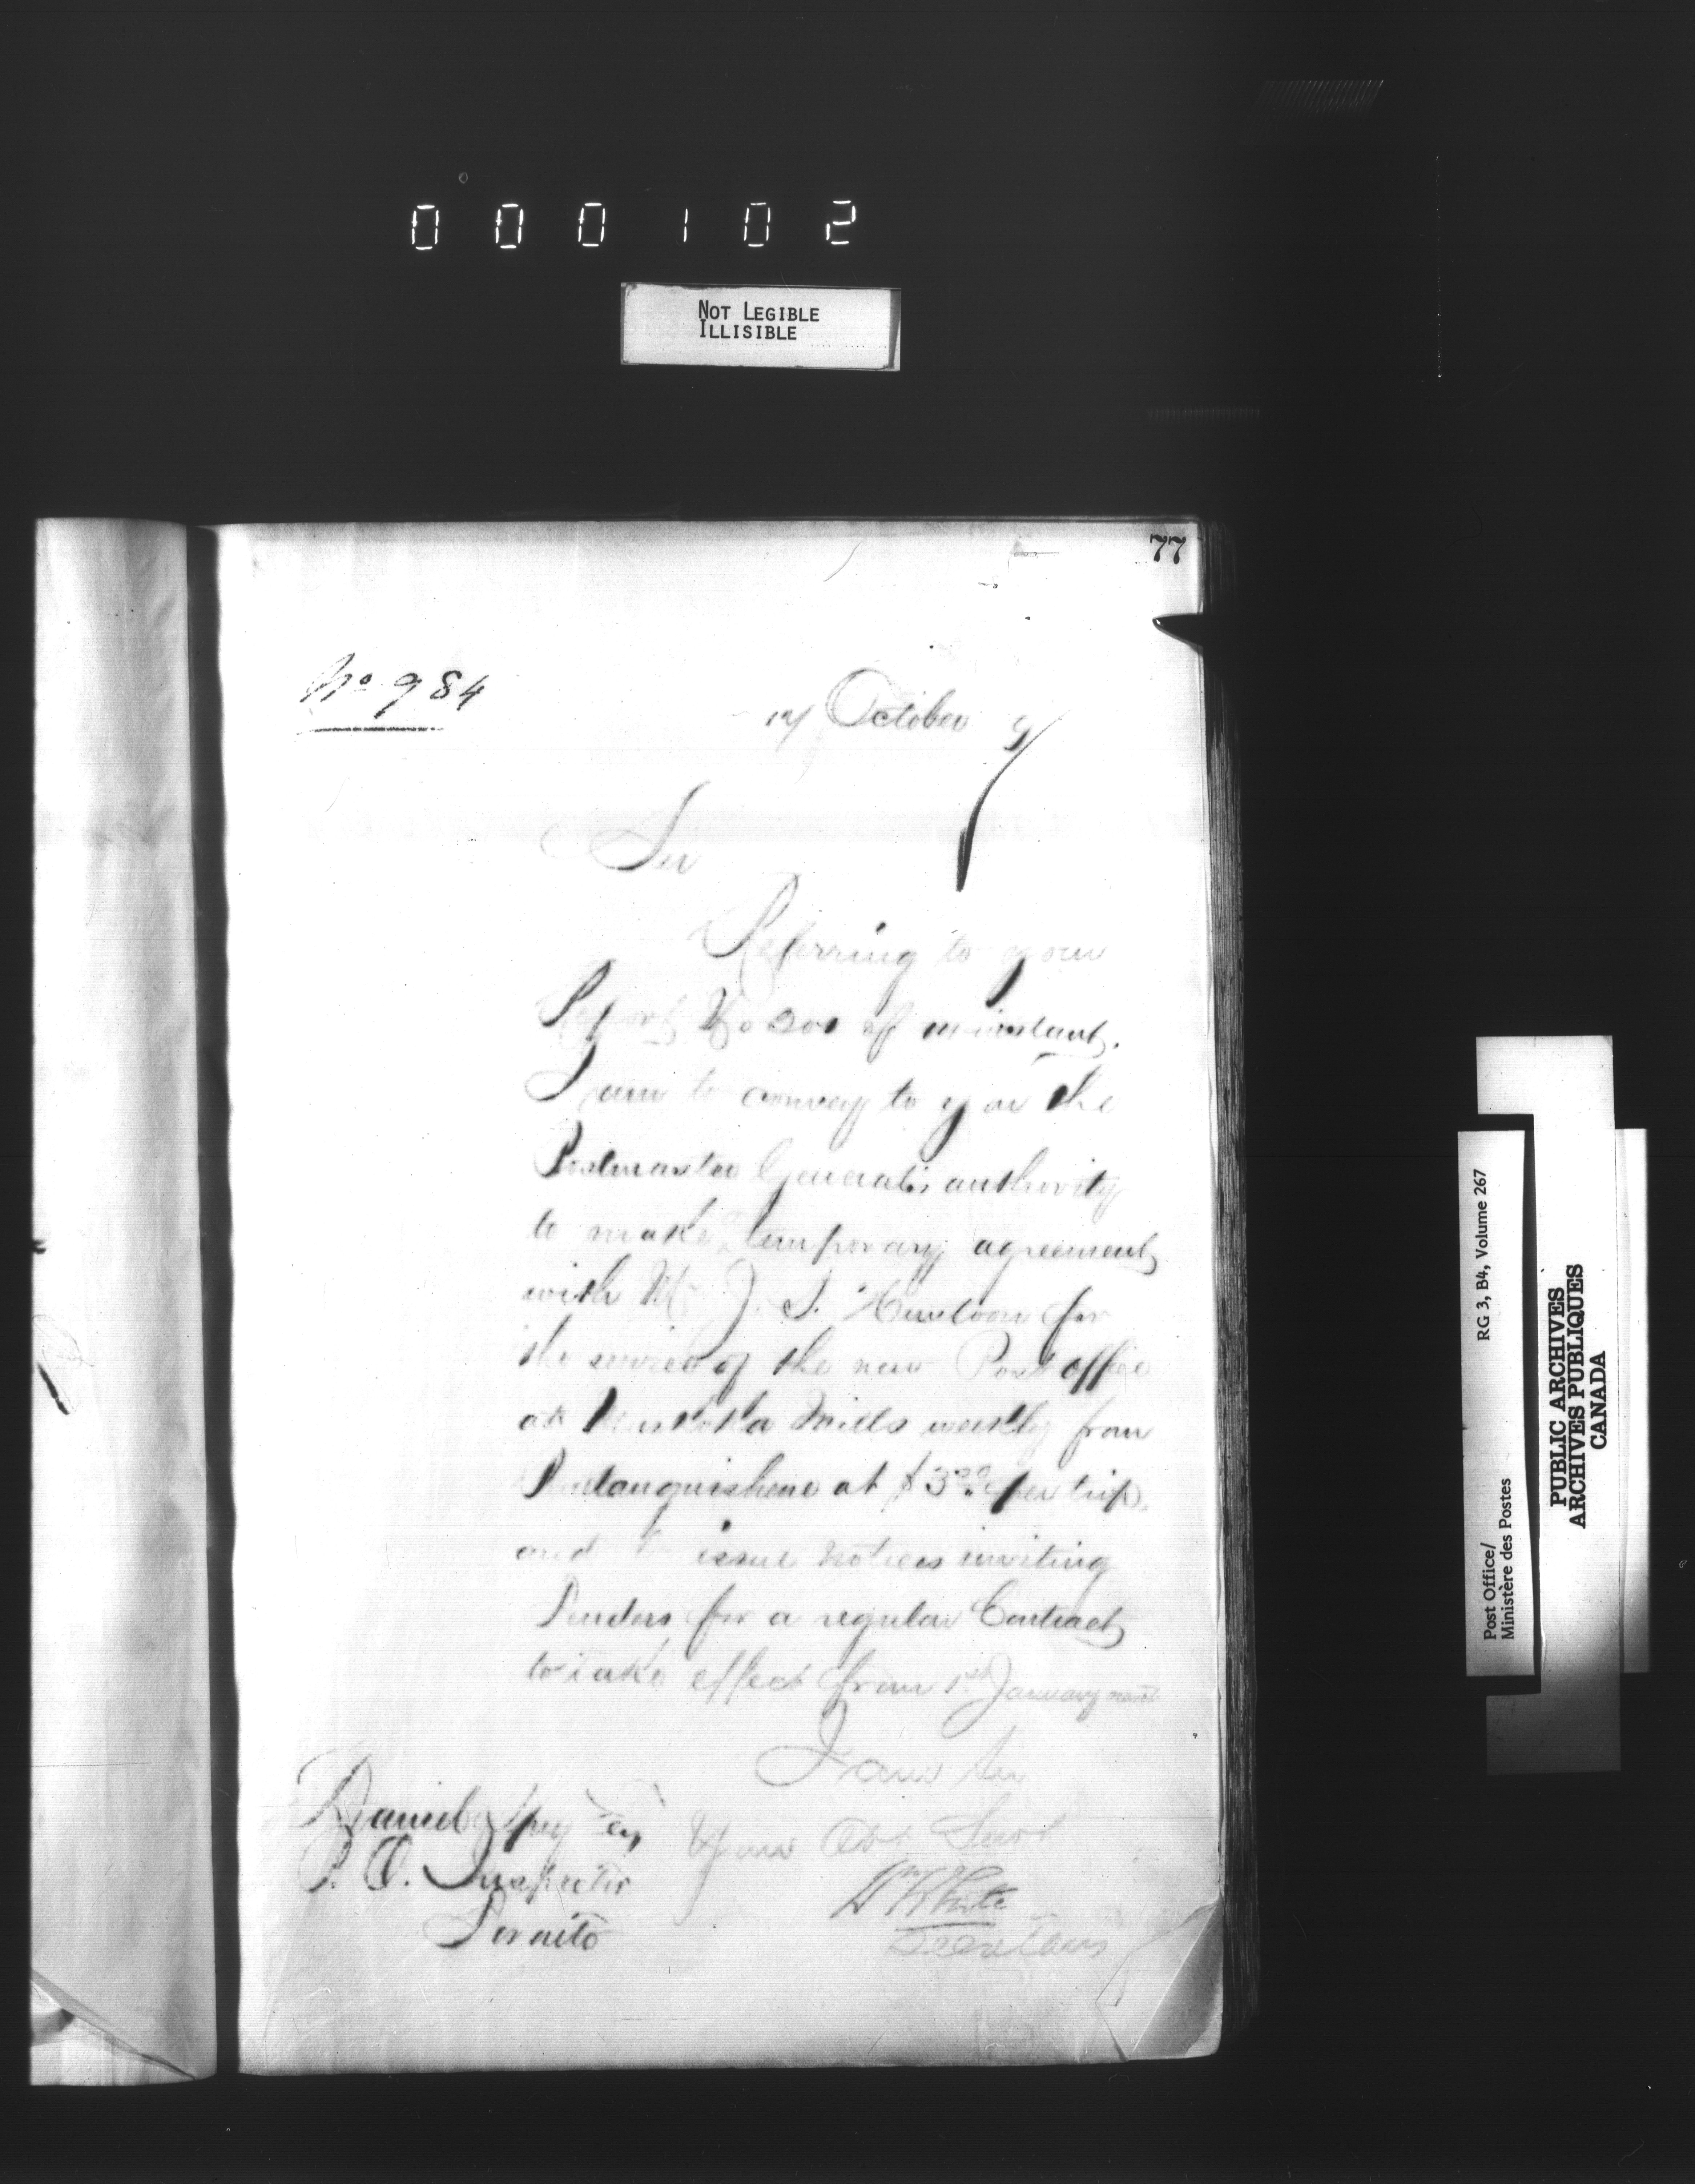 000102
NOT LEGIBLE
ILLISIBLE
77
No 984
October
Sir
Referring to your
Report No 201 of instant.
I am to convey to you the
Postmaster General's authority
to make temporary agreement
with Mr J. S. for
the service of the new Post office
at Muskoka Mills weekly from
Penetanguishene at $3 00 per trip.
and to issue notices inviting
Tenders for a regular Contract
to take effect from 1st January next
I am Sir
Your Obt Servt
Daniel Spry Esq
P. O. Inspector
Toronto
Wm White
Secretary
Post Office/ RG 3, B4, Volume 267
Ministère des Postes
PUBLIC ARCHIVES
ARCHIVES PUBLIQUES
CANADA